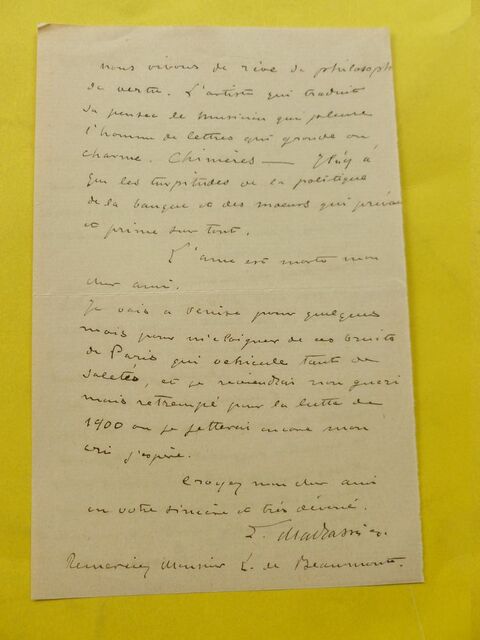 nous vivons de rêve de philosoph
de vertu. L'artiste qui traduit
sa pensée le musicien qui pleure
l'homme de lettres qui gronde ou
charme. Chimères — Il n'y a
que les turpitudes de la politique
de la banque et des moeurs qui
et prime sur tout.
L'ame est morte mon
cher ami.
Je vais a Venise pour quelques
mois pour m'eloigner de ces bruits
de Paris qui vehicule tant de
saletés, et je reviendrai non gueri
mais retrempé pour la lutte de
1900 ou je jetterai encore mon
cri j'espère.
Croyez mon cher ami
en votre sincere et très dévoué.
L. Madrassi
Remerciez Monsieur E. de Beaumont.